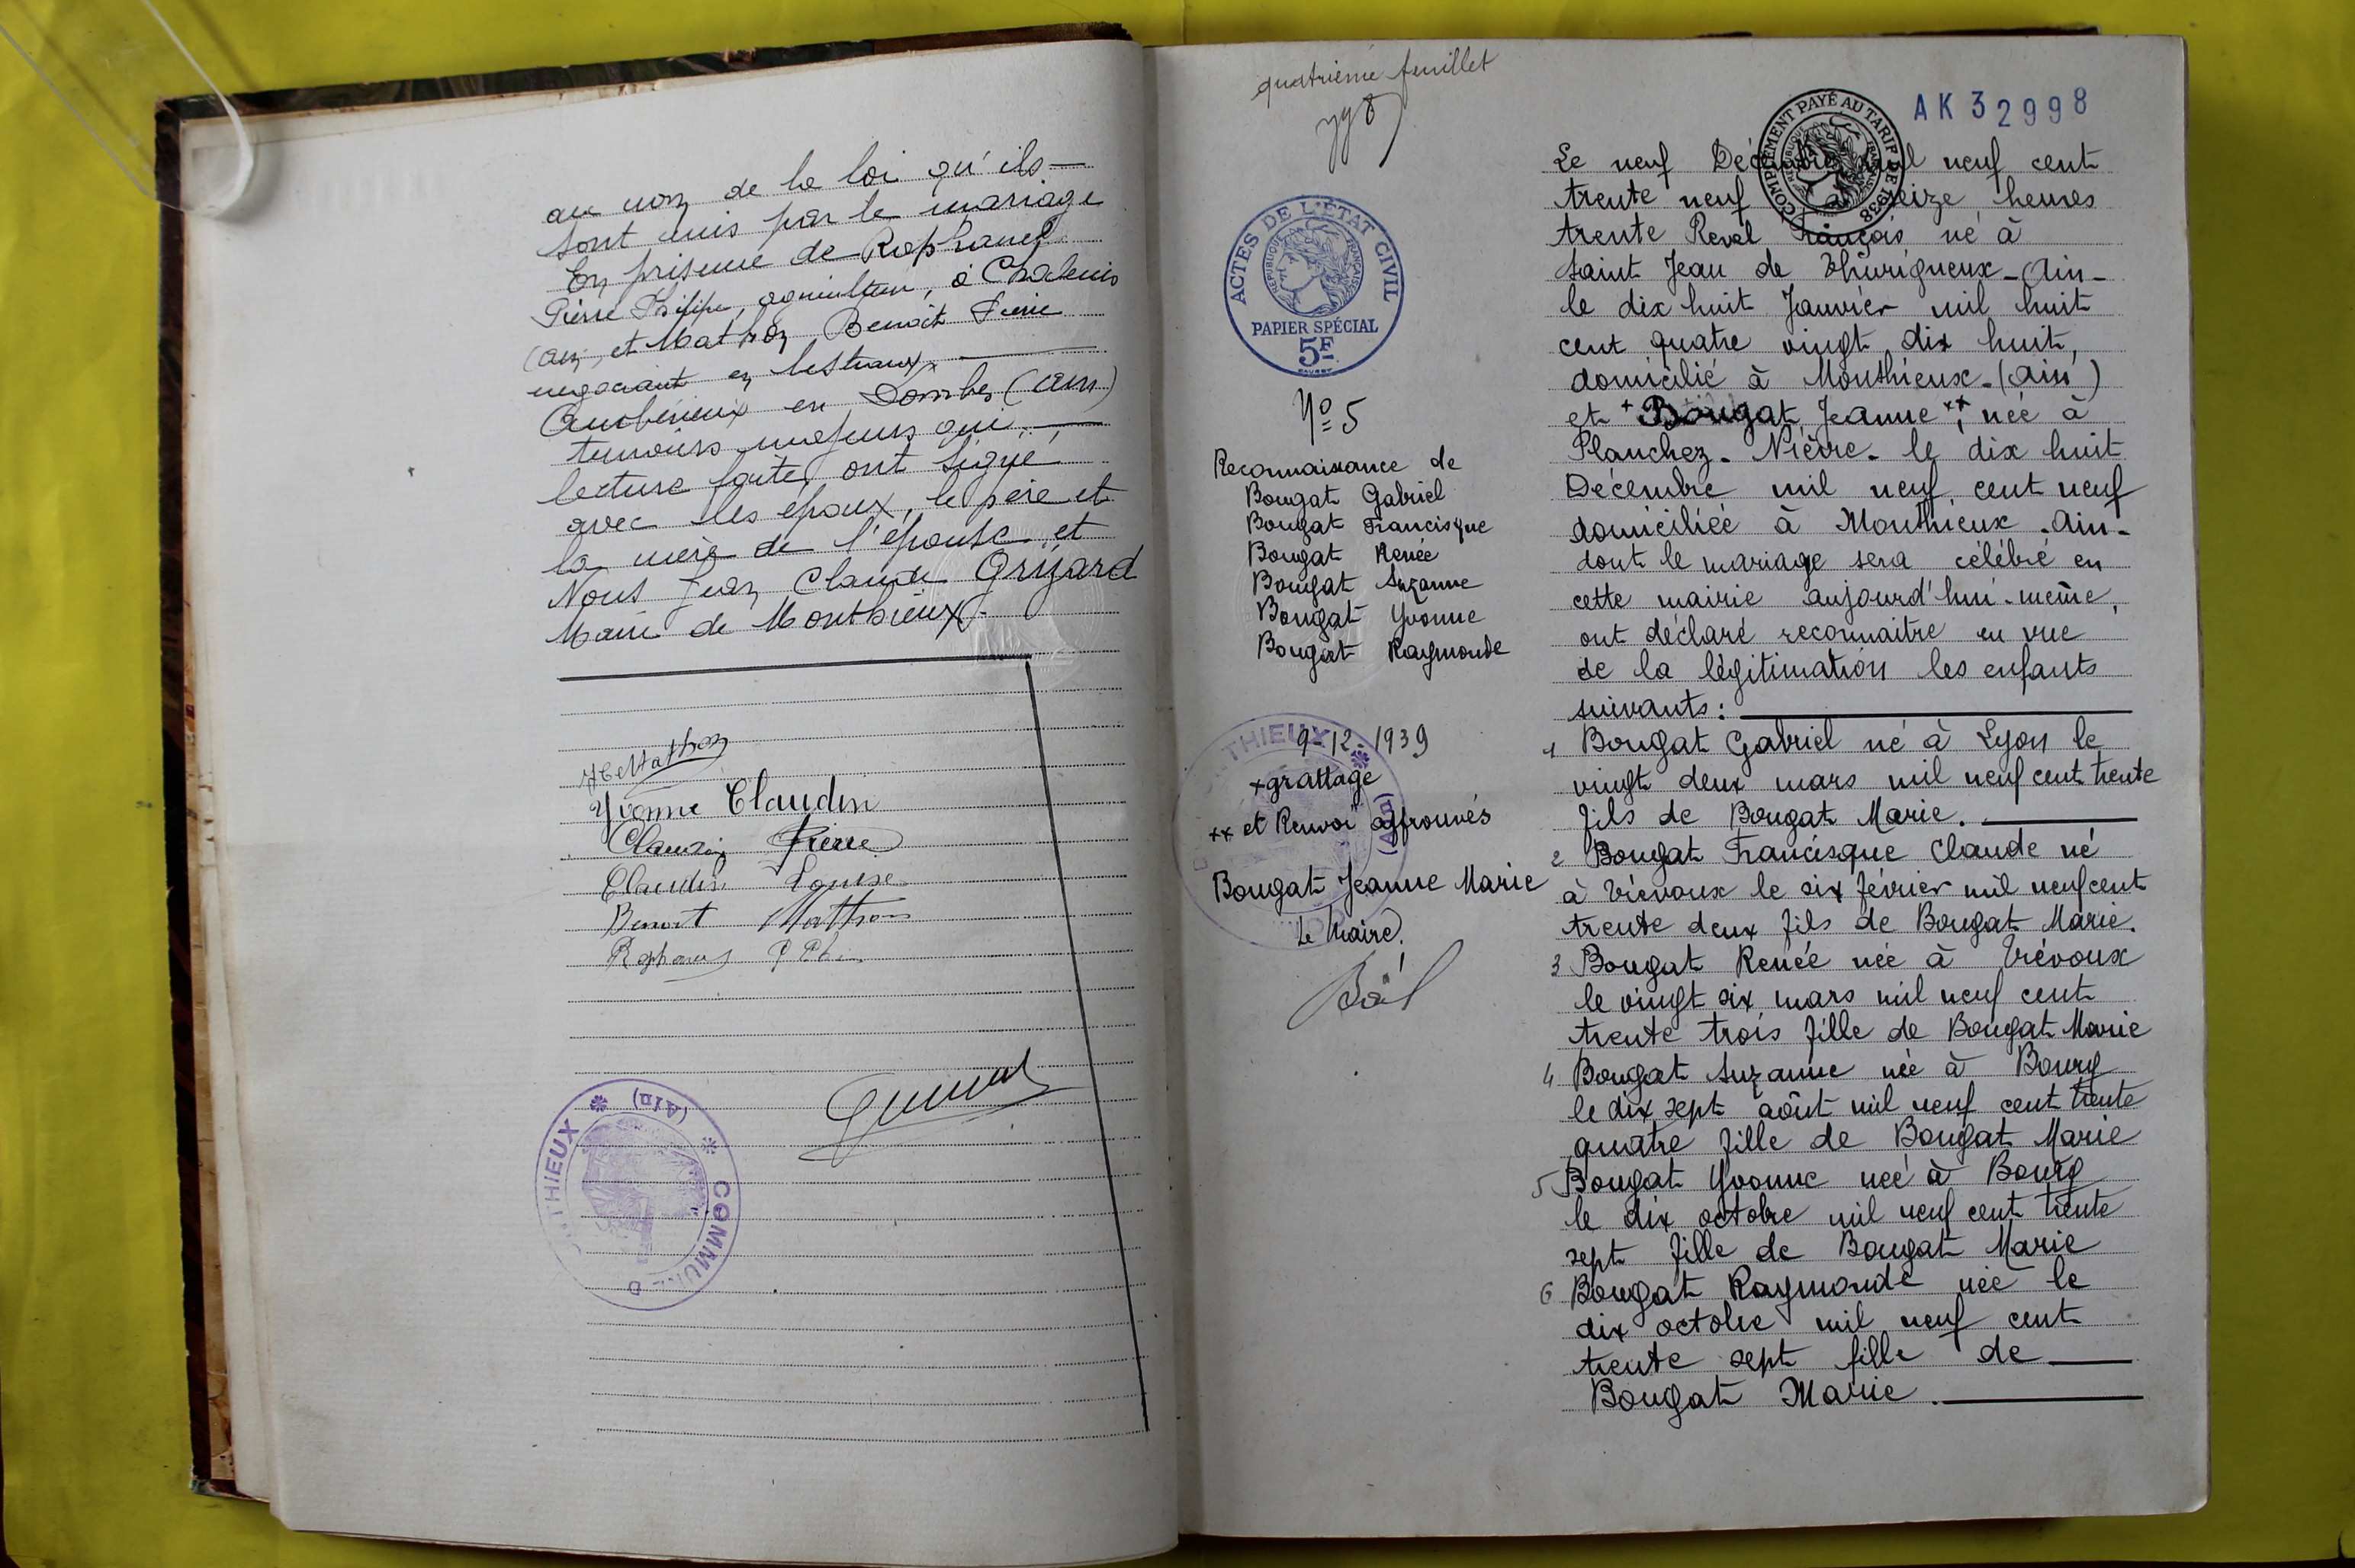 au nom de la loi qu'ils
sont unis par le mariage
En présence de Raphanel
Pierre Philippe, agriculteur, à Chaleins
(Ain), et Mathon Benoit Pierre
négociant en bestiaux
Ambérieux en Dombes (Ain)
témoins majeurs qui,
lecture faite, ont signé
avec les époux, le père et
la mère de l'épouse et
Nous Jean Claude Grizard
Maire de Monthieux.
Mathon
Yvonne Claudin
Claudin Pierre
Claudin Louise
Benoit Mathon
Raphanel
THIEUX (Ain) COMMUNE D
quatrième feuillet
ACTES DE L'ÉTAT CIVIL
RÉPUBLIQUE FRANÇAISE
PAPIER SPÉCIAL
5F
No 5
Reconnaissance de
Bougat Gabriel
Bougat Francisque
Bougat Renée
Bougat Suzanne
Bougat Yvonne
Bougat Raymonde
THIEUX (Ain)
9-12-1939
+ grattage
++ et Renvoi approuvés
Bougat Jeanne Marie
Le Maire.
AK 32998
COMPLÉMENT PAYÉ AU TARIF DE 1938
Le neuf Décembre mil neuf cent
trente neuf à seize heures
trente Reval François né à
Saint Jean de Thurigneux - Ain -
le dix huit Janvier mil huit
cent quatre vingt dix huit,
domicilié à Monthieux - (Ain)
et + Bougat Jeanne ++, née à
Planchez - Nièvre - le dix huit
Décembre mil neuf cent neuf
domiciliée à Monthieux - Ain -
dont le mariage sera célébré en
cette mairie aujourd'hui-même,
ont déclaré reconnaitre en vue
de la légitimation les enfants
suivants :
1 Bougat Gabriel né à Lyon le
vingt deux mars mil neuf cent trente
fils de Bougat Marie.
2 Bougat Francisque Claude né
à Trévoux le six février mil neuf cent
trente deux fils de Bougat Marie.
3 Bougat Renée née à Trévoux
le vingt six mars mil neuf cent
trente trois fille de Bougat Marie
4 Bougat Suzanne née à Bourg
le dix sept août mil neuf cent trente
quatre fille de Bougat Marie
5 Bougat Yvonne née à Bourg
le dix octobre mil neuf cent trente
sept fille de Bougat Marie
6 Bougat Raymonde née le
dix octobre mil neuf cent
trente sept fille de
Bougat Marie.